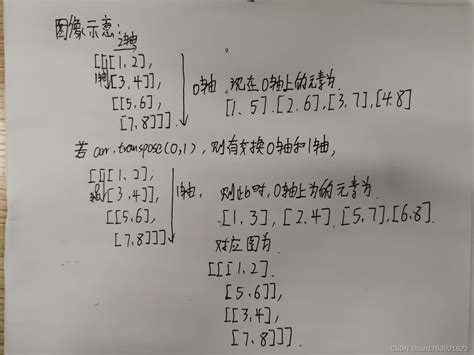 图像示意:
2轴
[[[1,2],
1轴 [3,4]],
[[5,6],
[7,8]]]
0轴.现在0轴上的元素为
[1,5].[2,6],[3,7],[4.8]
若arr.transpose(0,1),则有交换0轴和1轴,
[[[1,2],
0轴 [3,4]],
[[5,6],
[7,8]]]
1轴, 则此时,0轴上为的元素为
[1,3],[2,4].[5,7],[6,8].
对应图为
[[[1,2].
[5,6]],
[[3,4],
[7,8]]].
CSDN @zan1763921822